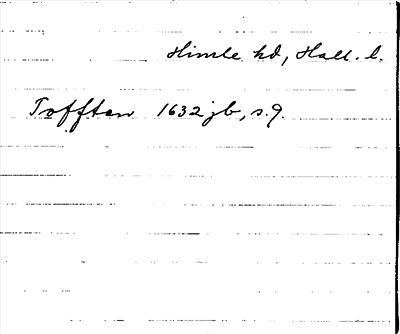 Himle hd, Hall. l.
Tofften 1632 jb, s. 9.